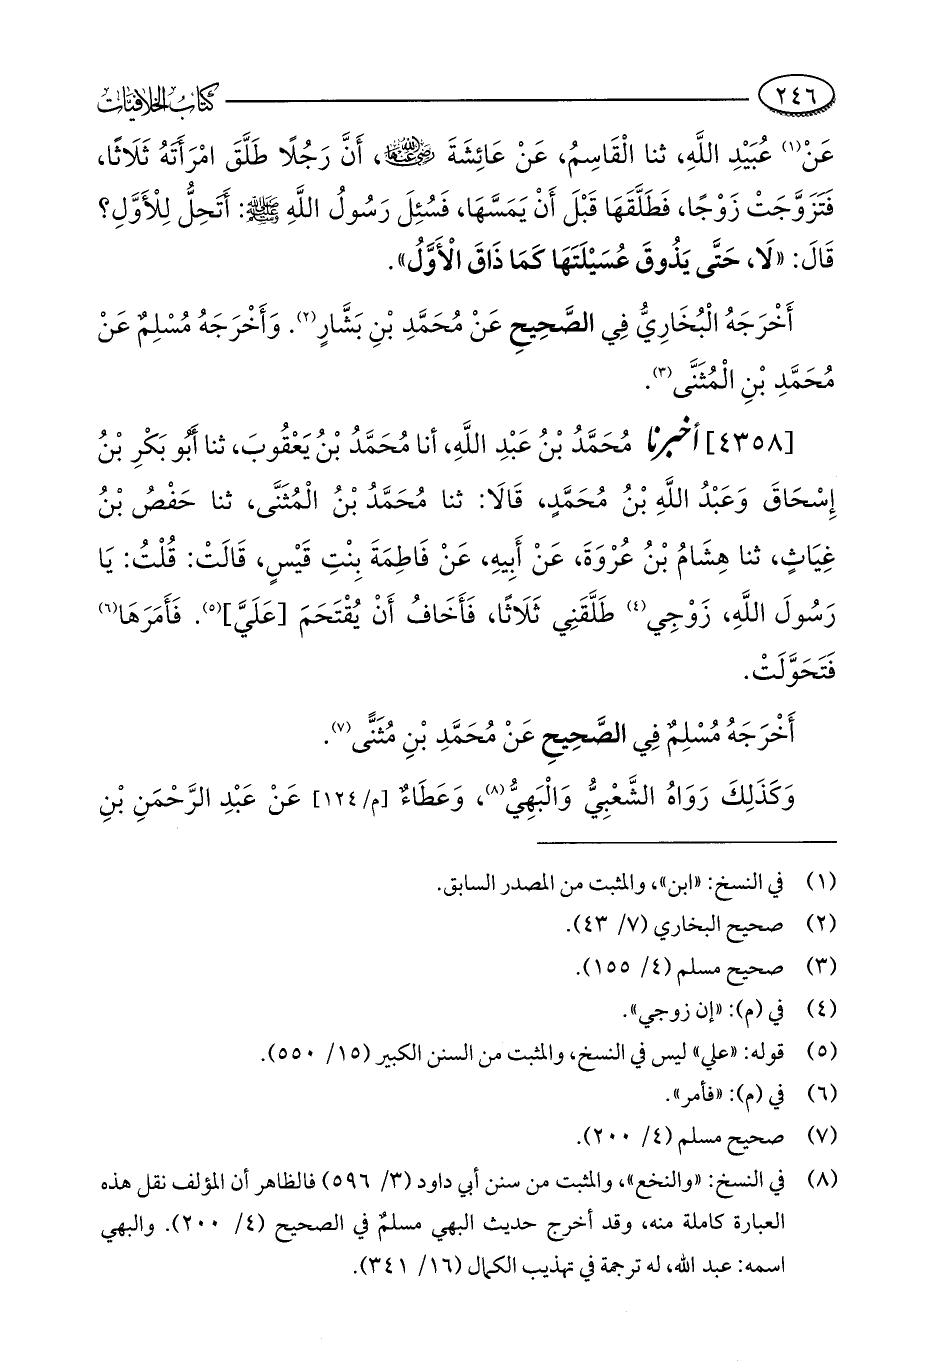 ٢٤٦ كتاب الخلافيات
عَنْ(١) عُبَيْدِ اللَّهِ، ثنا الْقَاسِمُ، عَنْ عَائِشَةَ رضي الله عنها، أَنَّ رَجُلًا طَلَّقَ امْرَأَتَهُ ثَلَاثًا،
فَتَزَوَّجَتْ زَوْجًا، فَطَلَّقَهَا قَبْلَ أَنْ يَمَسَّهَا، فَسُئِلَ رَسُولُ اللَّهِ ﷺ: أَتَحِلُّ لِلْأَوَّلِ؟
قَالَ: «لَا، حَتَّى يَذُوقَ عُسَيْلَتَهَا كَمَا ذَاقَ الْأَوَّلُ».
أَخْرَجَهُ الْبُخَارِيُّ فِي الصَّحِيحِ عَنْ مُحَمَّدِ بْنِ بَشَّارٍ(٢). وَأَخْرَجَهُ مُسْلِمٌ عَنْ
مُحَمَّدِ بْنِ الْمُثَنَّى(٣).
[٤٣٥٨] أخبرنا مُحَمَّدُ بْنُ عَبْدِ اللَّهِ، أنا مُحَمَّدُ بْنُ يَعْقُوبَ، ثنا أَبُو بَكْرِ بْنُ
إِسْحَاقَ وَعَبْدُ اللَّهِ بْنُ مُحَمَّدٍ، قَالَا: ثنا مُحَمَّدُ بْنُ الْمُثَنَّى، ثنا حَفْصُ بْنُ
غِيَاثٍ، ثنا هِشَامُ بْنُ عُرْوَةَ، عَنْ أَبِيهِ، عَنْ فَاطِمَةَ بِنْتِ قَيْسٍ، قَالَتْ: قُلْتُ: يَا
رَسُولَ اللَّهِ، زَوْجِي(٤) طَلَّقَنِي ثَلَاثًا، فَأَخَافُ أَنْ يُقْتَحَمَ [عَلَيَّ](٥). فَأَمَرَهَا(٦)
فَتَحَوَّلَتْ.
أَخْرَجَهُ مُسْلِمٌ فِي الصَّحِيحِ عَنْ مُحَمَّدِ بْنِ مُثَنًّى(٧).
وَكَذَلِكَ رَوَاهُ الشَّعْبِيُّ وَالْبَهِيُّ(٨)، وَعَطَاءٌ [م/١٢٤] عَنْ عَبْدِ الرَّحْمَنِ بْنِ
(١) في النسخ: «ابن»، والمثبت من المصدر السابق.
(٢) صحيح البخاري (٧/ ٤٣).
(٣) صحيح مسلم (٤/ ١٥٥).
(٤) في (م): «إن زوجي».
(٥) قوله: «علي» ليس في النسخ، والمثبت من السنن الكبير (١٥/ ٥٥٠).
(٦) في (م): «فأمر».
(٧) صحيح مسلم (٤/ ٢٠٠).
(٨) في النسخ: «والنخع»، والمثبت من سنن أبي داود (٣/ ٥٩٦) فالظاهر أن المؤلف نقل هذه
العبارة كاملة منه، وقد أخرج حديث البهي مسلمٌ في الصحيح (٤/ ٢٠٠). والبهي
اسمه: عبد الله، له ترجمة في تهذيب الكمال (١٦/ ٣٤١).